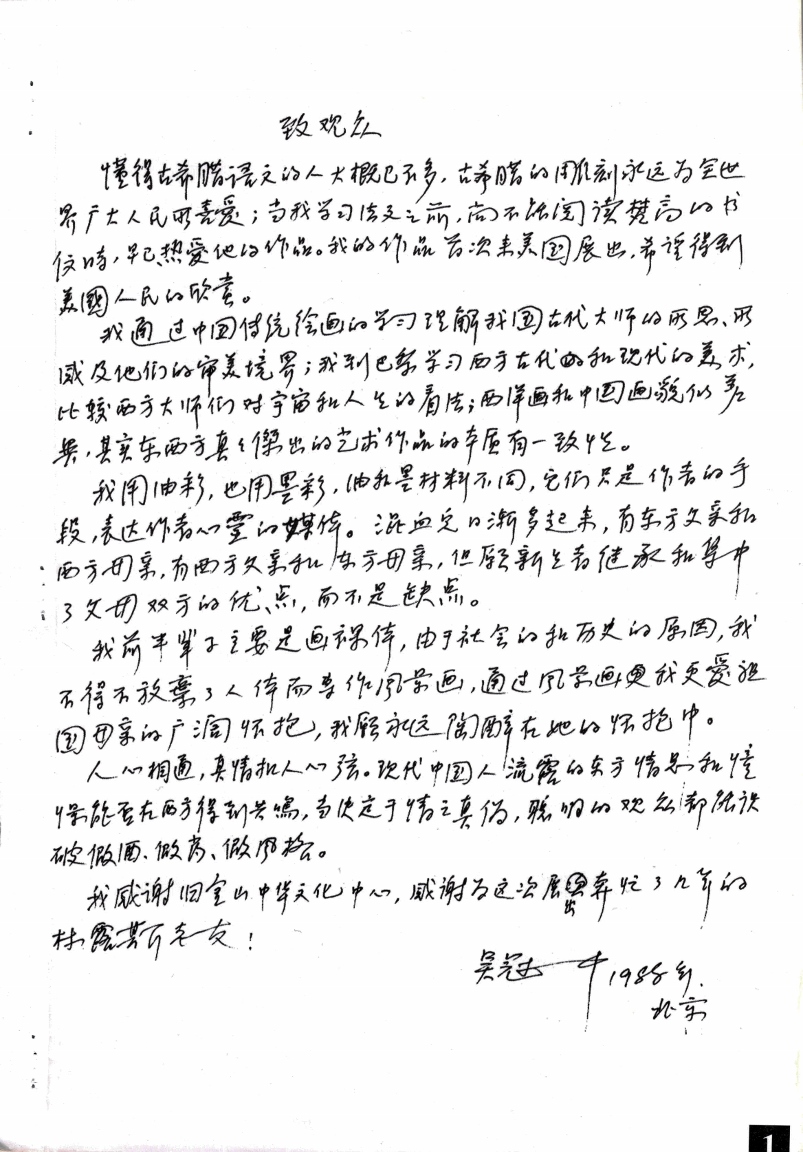 致观众
懂得古希腊语文的人大概已不多，古希腊的雕刻永远为全世
界广大人民所喜爱；当我学习法文之前，尚不能阅读梵高的书
信时，早已热爱他的作品。我的作品首次来美国展出，希望得到
美國人民的欣赏。
我通过中国传统绘画的学习理解我国古代大师的所思、所
感及他们的审美境界；我到巴黎学习西方古代的和现代的美术，
比较西方大师们对宇宙和人生的看法；西洋画和中国画貌似差
异，其实东西方真正傑出的艺术作品的本质有一致性。
我用油彩，也用墨彩，油和墨材料不同，它们只是作者的手
段，表达作者心灵的媒体。混血兒日渐多起来，有东方父亲和
西方母亲，有西方父亲和东方母亲，但願新生者继承和集中
了父母双方的优点，而不是缺点。
我前半辈子主要是画裸体，由于社会的和历史的原因，我
不得不放棄了人体而专作风景画，通过风景画更我更爱祖
国母亲的广阔怀抱，我願永远陶醉在她的怀抱中。
人心相通，真情扣人心弦。现代中国人流露的东方情思和憧
憬能否在西方得到共鸣，当决定于情之真伪，聪明的观众都能识
破假酒、假药、假风格。
我感谢旧金山中华文化中心，感谢为这次展出奔忙了几年的
林露斯老友！
吴冠中 1988年.
北京
1